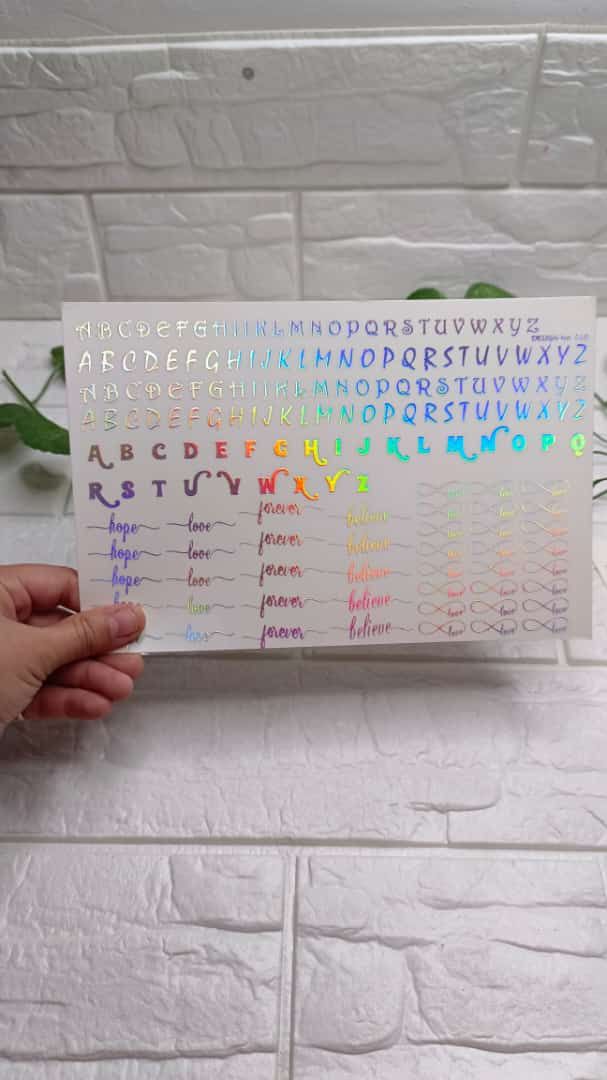 A B C D E F G H I J K L M N O P Q R S T U V W X Y Z
A B C D E F G H I J K L M N O P Q R S T U V W X Y Z
A B C D E F G H I J K L M N O P Q R S T U V W X Y Z
A B C D E F G H I J K L M N O P Q R S T U V W X Y Z
A B C D E F G H I J K L M N O P Q
R S T U V W X Y Z
hope love forever believe love love love
hope love forever believe love love love
hope love forever believe love love love
hope love forever believe love love love
love forever believe love love love
love love love
love love love